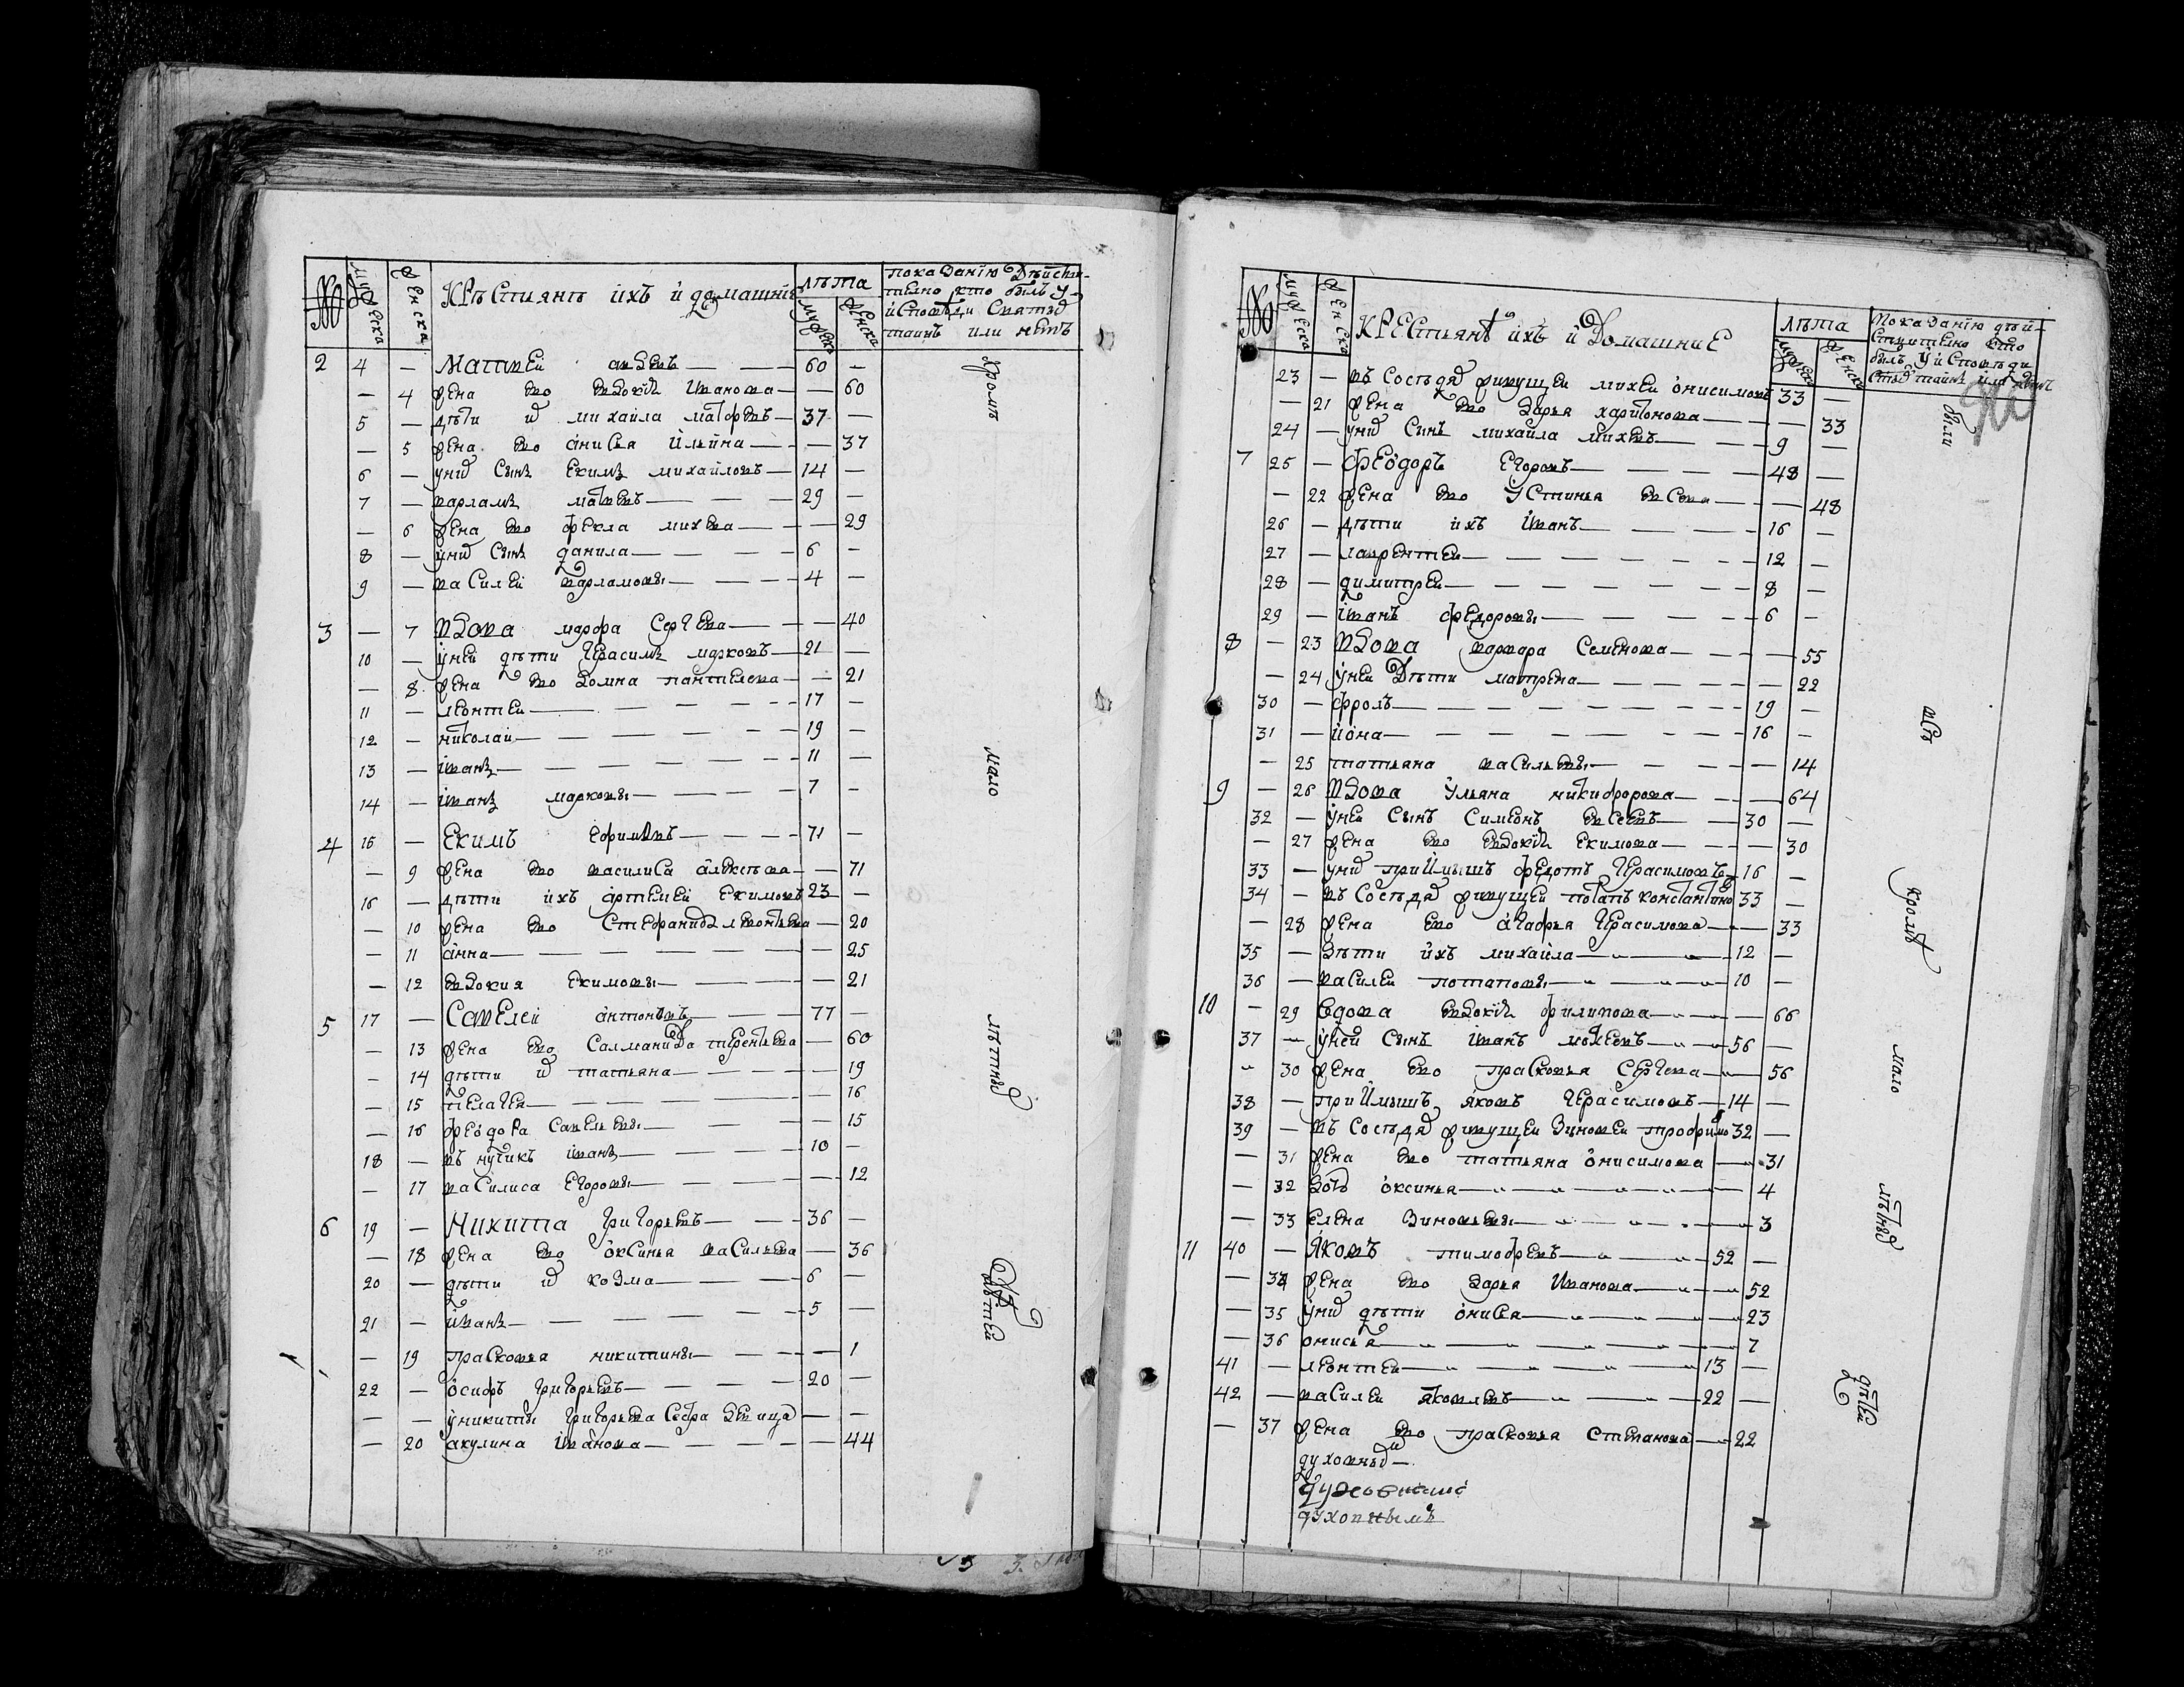 № мужеска женска Крѣстиянѣ ихъ и домашние лѣта мужска женска показанию дѣйстви-
телно кто былъ у
исповѣди святых
таинъ или нетъ
2 4 — Матвей — 60 —
— 4 жена ево евдокия иванова — — 60
5 — дѣти их михаила матфеевъ — 37 —
— 5 жена ево анисья ильина — — 37
6 — у них сынъ екимъ михайловъ — 14 —
7 — варламъ матвевъ — 29 —
— 6 жена ево фекла михева — — 29
8 — у них сынъ данила — 6 —
9 — василей варламовы — 4 —
3 — 7 вдова марфа сергева — — 40
10 — у ней дѣти герасимъ марковъ — 21 —
— 8 жена ево домна пантелева — — 21
11 — леонтей — 17 —
12 — николай — 19 —
13 — иванъ — 11 —
14 — иванъ марковы — 7 —
4 15 — Екимъ ефимовъ — 71 —
— 9 жена ево василиса алексѣва — — 71
16 — дѣти ихъ артемей екимовъ 23 —
— 10 жена ево стефанида леонтьева — 20
— 11 анна — — 25
— 12 евдокия екимовы — — 21
5 17 — Савелей антоновъ — 77 —
— 13 жена ево саламанида терентьева — 60
— 14 дѣти их татьяна — — 19
— 15 пелагея — — 16
— 16 феодора савельевы — — 15
18 — внучикъ иванъ — 10 —
— 17 василиса егоровы — — 12
6 19 — Никита григорьевъ — 36 —
— 18 жена ево оксинья васильева — 36
20 — дѣти их козма — 6 —
21 — иванъ — 5 —
— 19 прасковья никитины — — 1
22 — осифъ григорьевъ — 20 —
— — у никиты григорьева сестра девица — —
— 20 акулина иванова — — 44
кромѣ
мало
лѣтных
дѣтей
№ мужеска женска крестьянѣ ихъ и домашние лѣта мужеска женска показанию дѣй-
ствително кто
былъ у исповѣди
стых таинъ или нетъ
23 — въ соседях живущей михей онисимовъ 33 —
— 21 жена ево дарья харитонова — — 33
24 — у них синъ михаила михевъ — 9 —
7 25 — феодоръ егоровъ — 48 —
— 22 жена ево устинья евсева — — 48
26 — дѣти ихъ иванъ — 16 —
27 — лаврентей — 12 —
28 — димитрей — 8 —
29 — иванъ федоровы — 6 —
8 — 23 вдова варвара семенова — — 55
— 24 у ней дѣти матрена — — 22
30 — фролъ — 19 —
31 — иона — 16 —
— 25 татьяна васильевы — — 14
9 — 26 вдова ульяна никифорова — — 64
32 — у ней сынъ симеонъ евсевъ — 30 —
— 27 жена ево евдокия екимова — — 30
33 — у них приймышъ федотъ герасимовъ — 16 —
34 — въ соседях живущей потапъ константино 33 —
— 28 жена ево агафья герасимова — — 33
35 — дѣти ихъ михайла — 12 —
36 — василей потаповы — 10 —
10 — 29 вдова евдокия филипова — — 66
37 — у ней сынъ иванъ мокеевъ — 56 —
— 30 жена ево прасковья сергева — 56
38 — приймышъ яковъ герасимовъ — 14 —
39 — въ соседях живущей зиновей трофимо 32 —
— 31 жена ево татьяна онисимова — 31
— 32 оксинья — 4
— 33 елена зиновьевы — 3
11 40 — яковъ тимофеевъ — 52 —
— 34 жена ево дарья иванова — 52
— 35 у них дѣти онисья — 23
— 36 онисья — 7
41 — леонтей — 13 —
42 — василей яковлевъ — 22 —
— 37 жена ево прасковья степанова — 22
духовных —
духовными
духовнымъ
были
всѣ
кромѣ
мало
лѣтных
дѣтей